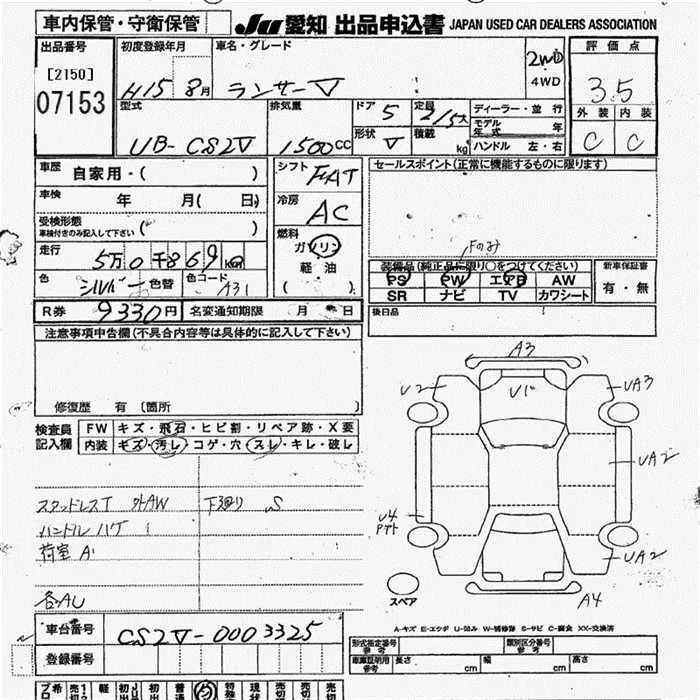 車内保管・守衛保管
JU 愛知 出品申込書 JAPAN USED CAR DEALERS ASSOCIATION
出品番号 初度登録年月 車名・グレード 評価点
[2150] 2WD
07153 H15 8月 ランサーV 4WD 3.5
型式 排気量 ドア 5 定員 2/5人 ディーラー・並行 外装 内装
UB-CS2V 1500cc 形状 V 積載 kg モデル年式 年 C C
ハンドル 左・右
車歴 自家用・( ) シフト FAT セールスポイント(正常に機能するものに限ります)
車検 年 月( 日) 冷房 AC
受検形態
車検付きのみ記入して下さい ( )
燃料 ガソリン
走行 5万0千869km 軽油 Fのみ
色 シルバー 色替 色コード A31 ( )
装備品(純正品に限り○をつけてください) 新車保証書
PS PW エアB AW 有・無
SR ナビ TV カワシート
R券 9330円 名変通知期限 月 日 後日品
注意事項申告欄(不具合内容等は具体的に記入して下さい)
修復歴 有 〔箇所 〕
検査員記入欄 FW キズ・飛石・ヒビ割・リペア跡・X要
内装 キズ・汚レ・コゲ・穴・スレ・キレ・破レ
A3
U2 UA3
UA2
U4
UA2
A4
スタッドレスT 外AW 下廻り S
ハンドルハゲ
荷室A
各AU
スペア
A-キズ E-エクボ U-凹み W-補修跡 S-サビ C-腐食 XX-交換済
車台番号 CS2V-0003325
登録番号
形式指定番号 参考 類別区分番号 参考
車庫証明用参考 長さ cm 幅 cm 高さ cm